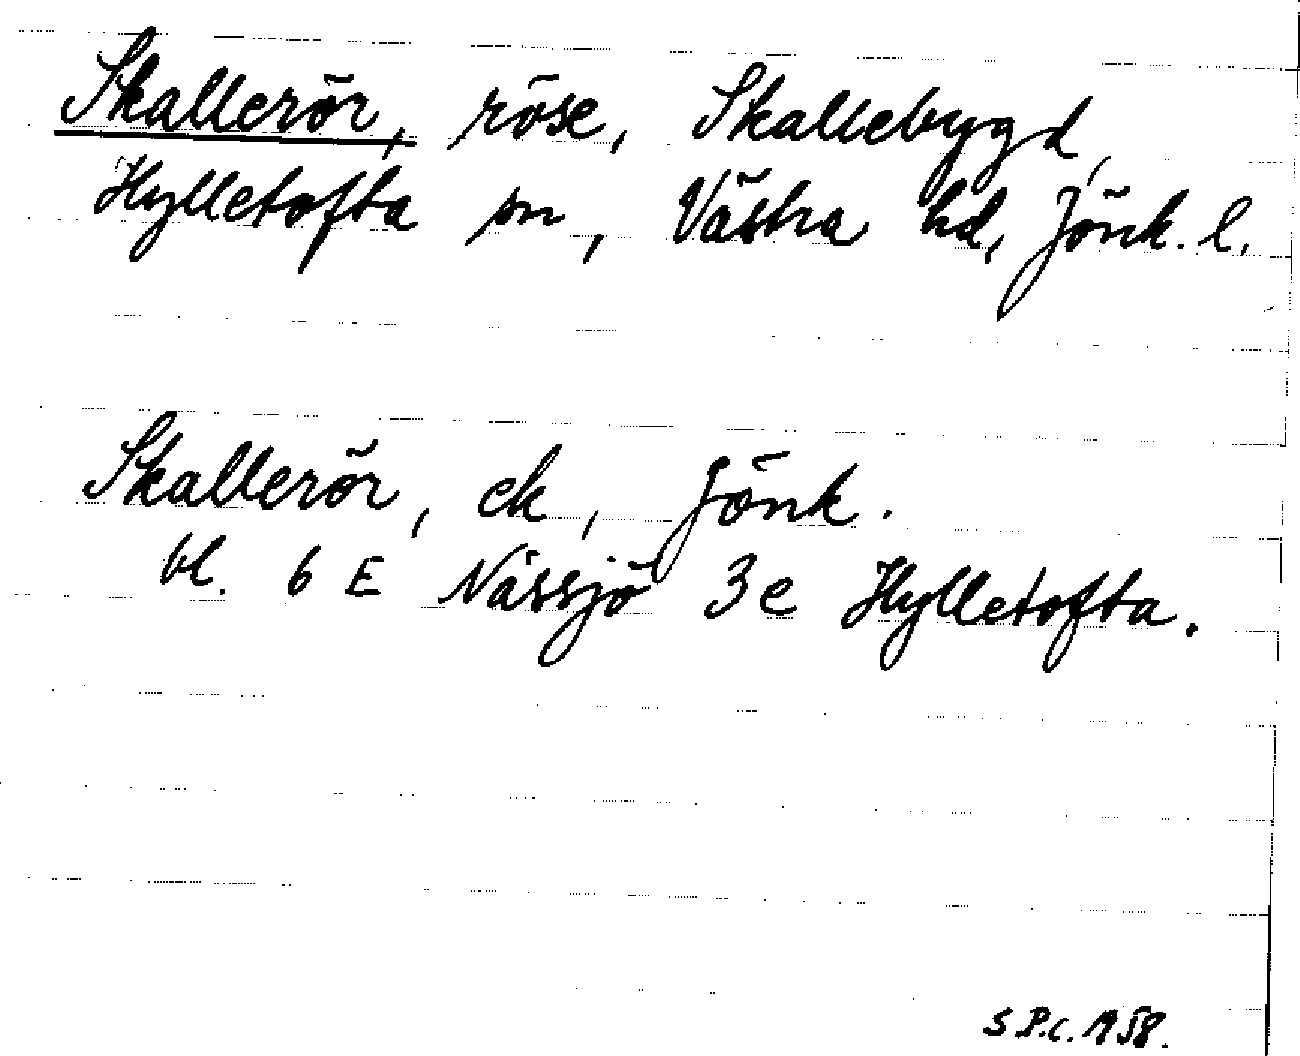 Skallerör, röse, Skallebygd,
Hylletofta sn, Västra hd, Jönk. l.
Skallerör, ek, Jönk.
bl. 6 E Nässjö 3 e Hylletofta.
S P.C. 1958.